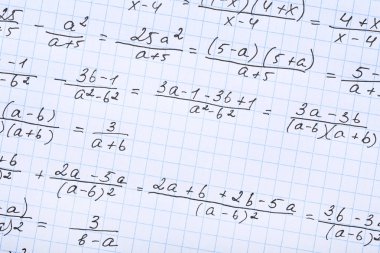 x-4 = (4-x)(4+x)/x-4 = 4+x/x-4
25/+5 - a²/a+5 = 25a²/a+5 = (5-a)(5+a)/a+5 = 5-/a+
-1/-b² - 3b-1/a²-b² = 3a-1-3b+1/a²-b² = 3a-3b/(a-b)(a+b)
(a-b)/)(a+b) = 3/a+b
+b/)² + 2a-5a/(a-b)² = 2a+b+2b-5a/(a-b)² = 3b-3a/(a-b)²
-a)/a)² = 3/b-a